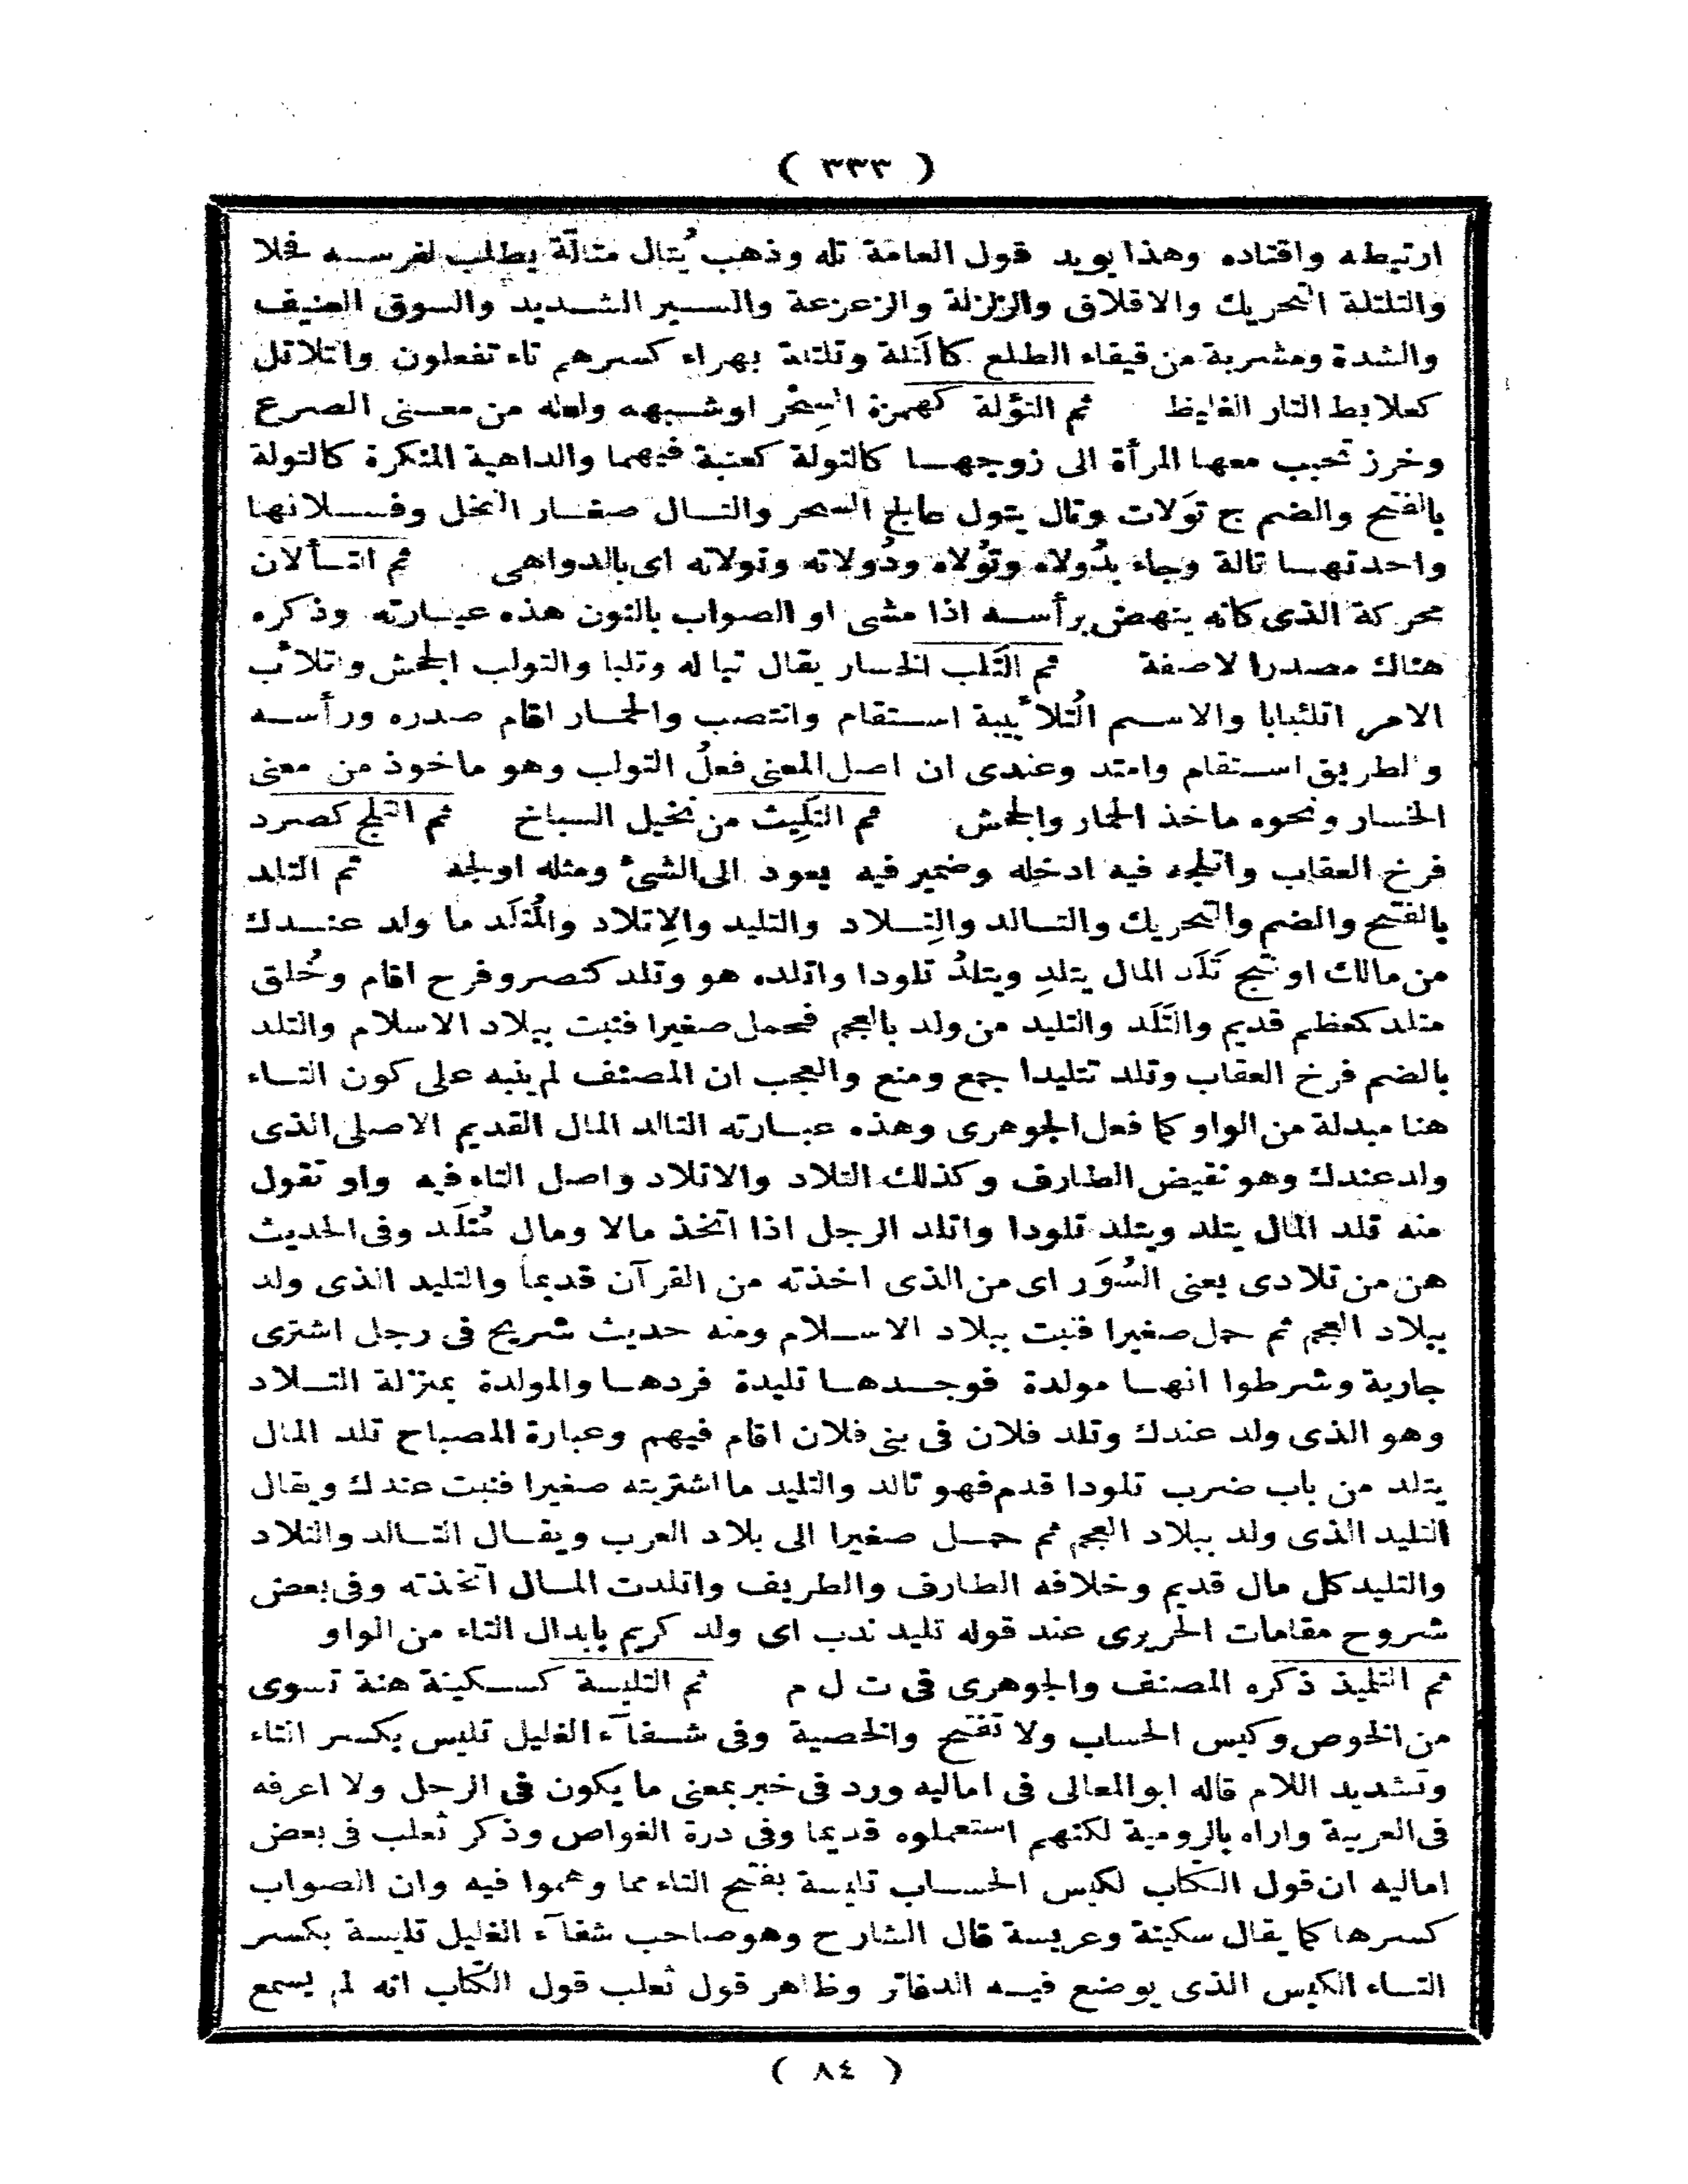 ( ٣٣٣ )
ارتبطه واقتاده وهذا يويد قول العامة تله وذهب يُتال متالّة يطلب لفرسه فحلا
والتلتلة التحريك والاقلاق والزلزلة والزعزعة والسير الشديد والسوق العنيف
والشدة ومشربة من قيقاء الطلع كالتَلة وتلتلة بهراء كسرهم تاء تفعلون والتلاتل
كعلابط التار الغليظ ثم التؤلة كهمزة السِحْر او شبهه ولعله من معنى الصرع
وخرز تحبب معها المرأة الى زوجها كالتولة كعنبة فيهما والداهية المنكرة كالتولة
بالفتح والضم ج تَوَلات وتال يتول عالج السحر والتال صغار النخل وفسلانها
واحدتها تالة وجاء بدُولاه وتُولاه ودُولاته وتولاته اى بالدواهى ثم التألان
محركة الذى كانه ينهض برأسه اذا مشى او الصواب بالنون هذه عبارته وذكره
هناك مصدرا لاصفة ثم التَلب الخسار يقال تبا له وتلبا والتولب الجحش واتلأب
الامر اتلئبابا والاسم التُلأبيبة استقام وانتصب والحمار اقام صدره ورأسه
والطريق استقام وامتد وعندى ان اصل المعنى فعلُ التولب وهو ماخوذ من معنى
الخسار ونحوه ماخذ الحمار والجحش ثم التَليث من نخيل السباخ ثم التلج كصرد
فرخ العقاب واتلجه فيه ادخله وضمير فيه يعود الى الشئ ومثله اولجه ثم التلد
بالفتح والضم والتحريك والتالد والتِلاد والتليد والاِتلاد والمُتلَد ما ولد عندك
من مالك او نتج تَلَد المال يتلِد ويتلُد تلودا واتلده هو وتلد كنصر وفرح اقام وخُلق
متلد كمعظم قديم والتَلَد والتليد من ولد بالعجم فحمل صغيرا فنبت ببلاد الاسلام والتلد
بالضم فرخ العقاب وتلد تتليدا جمع ومنع والعجب ان المصنف لم ينبه على كون التاء
هنا مبدلة من الواو كما فعل الجوهرى وهذه عبارته التالد المال القديم الاصلى الذى
ولد عندك وهو نقيض الطارف وكذلك التلاد والاتلاد واصل التاء فيه واو تقول
منه تلد المال يتلد ويتلد تلودا واتلد الرجل اذا اتخذ مالا ومال مُتلَد وفى الحديث
هن من تلادى يعنى السُوَر اى من الذى اخذته من القرآن قديماً والتليد الذى ولد
ببلاد العجم ثم حمل صغيرا فنبت ببلاد الاسلام ومنه حديث شريح فى رجل اشترى
جارية وشرطوا انها مولدة فوجدها تليدة فردها والمولدة بمنزلة التلاد
وهو الذى ولد عندك وتلد فلان فى بنى فلان اقام فيهم وعبارة المصباح تلد المال
يتلد من باب ضرب تلودا قدم فهو تالد والتليد ما اشتريته صغيرا فنبت عندك ويقال
التليد الذى ولد ببلاد العجم ثم حمل صغيرا الى بلاد العرب ويقال التالد والتلاد
والتليد كل مال قديم وخلافه الطارف والطريف واتلدت المال اتخذته وفى بعض
شروح مقامات الحريرى عند قوله تليد ندب اى ولد كريم بابدال التاء من الواو
ثم التلميذ ذكره المصنف والجوهرى فى ت ل م ثم التليسة كسكينة هنة تسوى
من الخوص وكيس الحساب ولا تفتح والخصية وفى شفآء الغليل تليس بكسر التاء
وتشديد اللام قاله ابو المعالى فى اماليه ورد فى خبر بمعنى ما يكون فى الرحل ولا اعرفه
فى العربية واراه بالرومية لكنهم استعملوه قديما وفى درة الغواص وذكر ثعلب فى بعض
اماليه ان قول الكتاب لكيس الحساب تليسة بفتح التاء مما وهموا فيه وان الصواب
كسرها كما يقال سكينة وعريسة قال الشارح وهو صاحب شفآء الغليل تليسة بكسر
التاء الكيس الذى يوضع فيه الدفاتر وظاهر قول ثعلب قول الكتّاب انه لم يسمع
( ٨٤ )